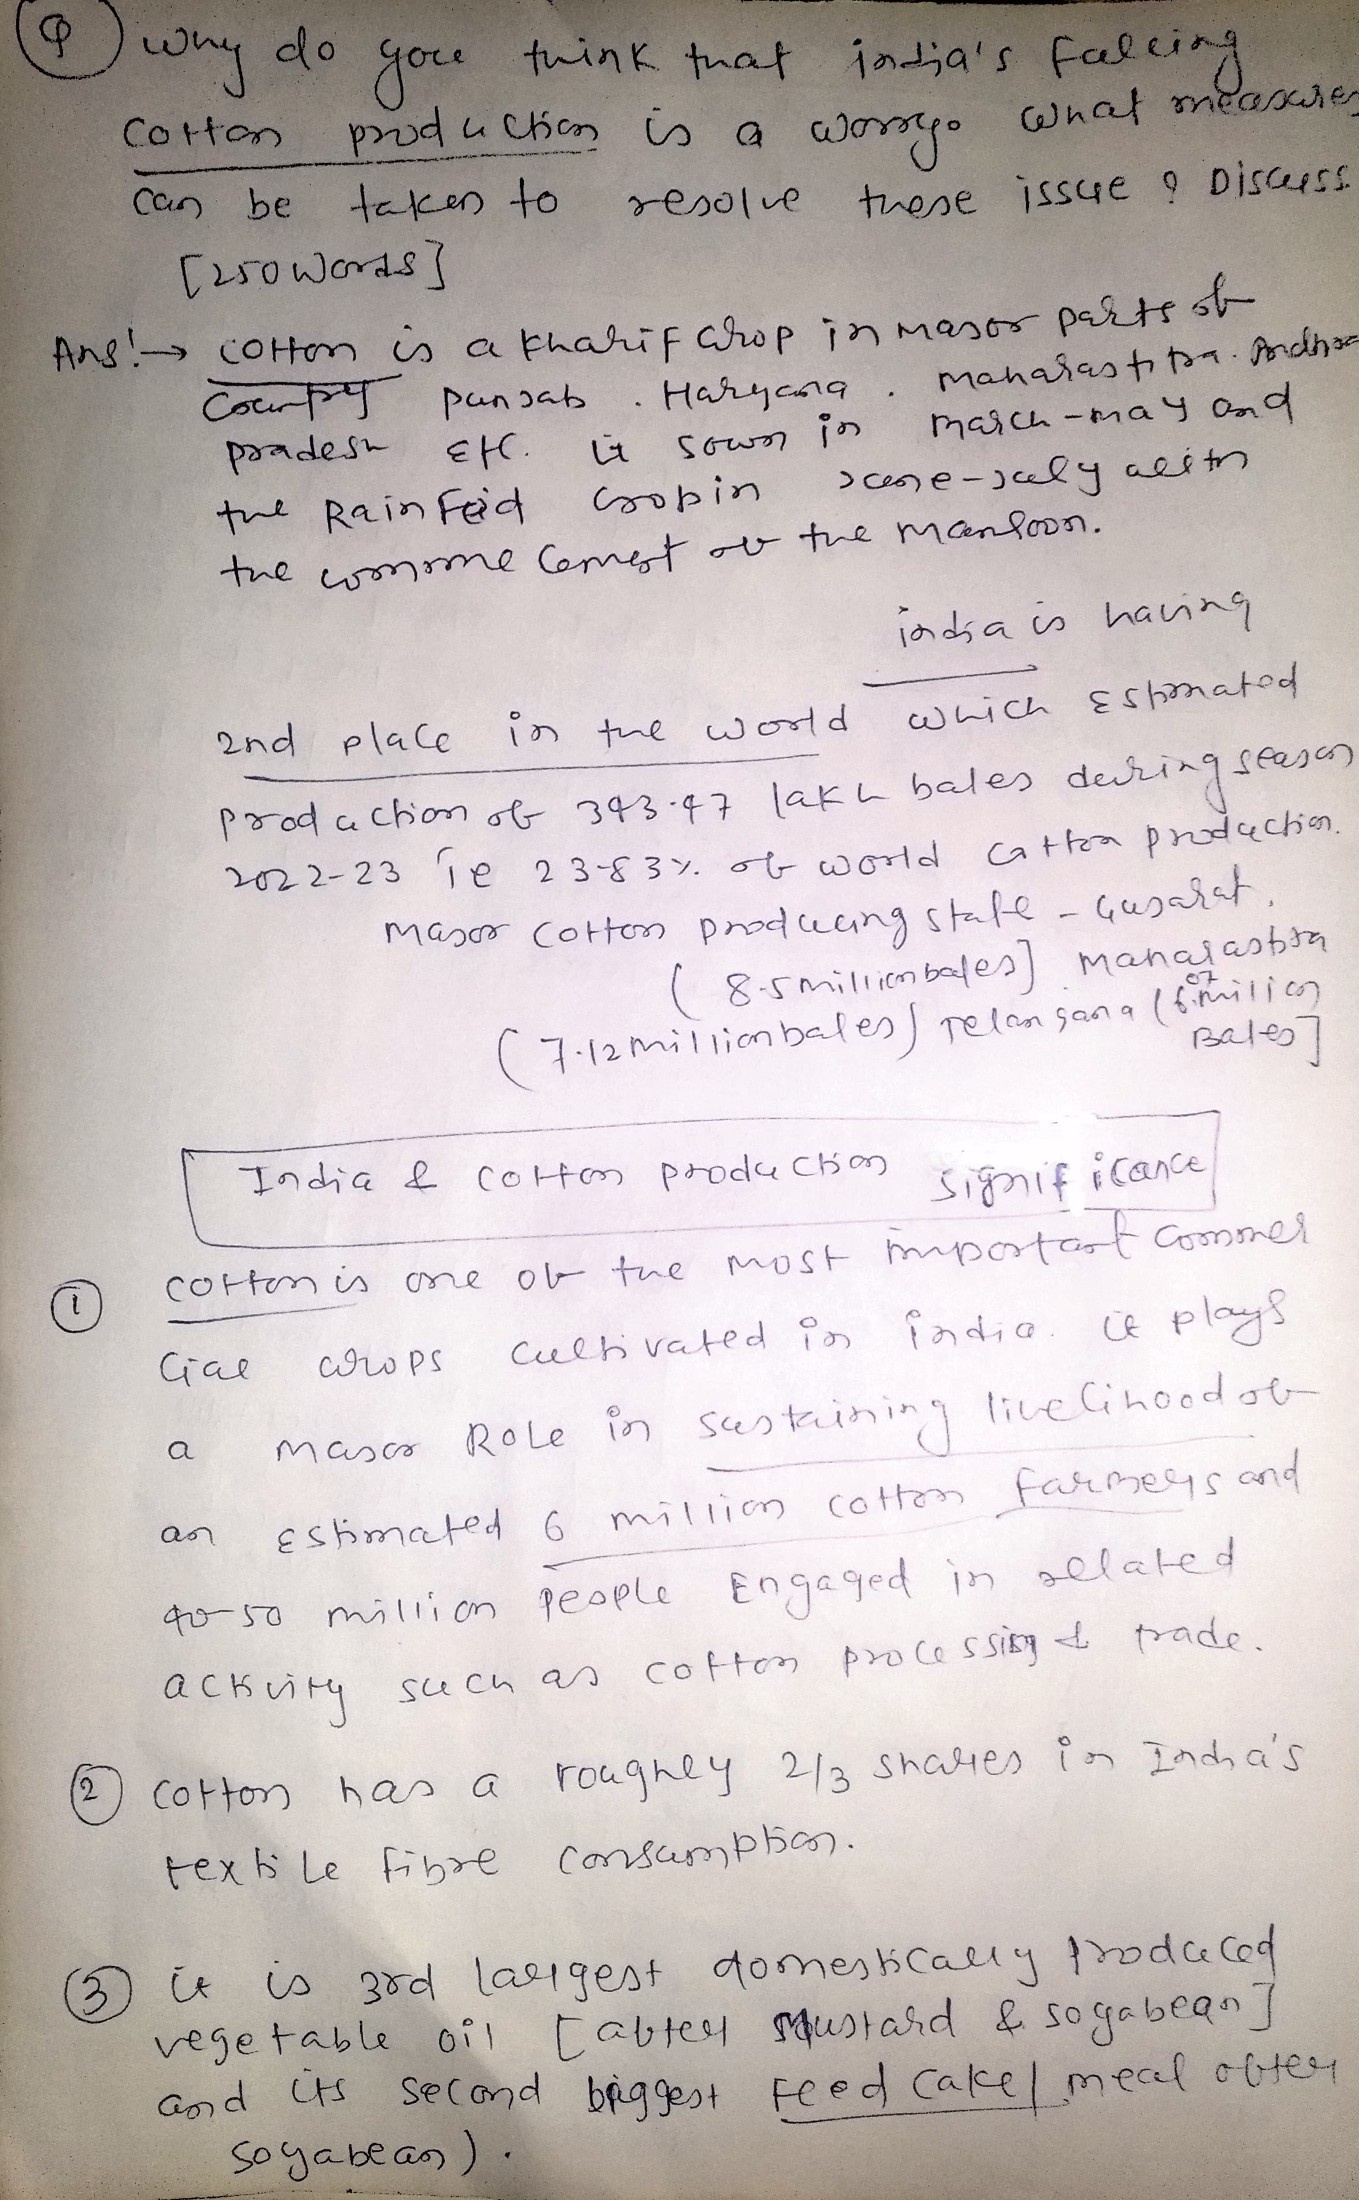 Q Why do you think that india's falling
cotton production is a worry. What measures
can be taken to resolve these issue ? Discuss
[250 words]
Ans:→ cotton is a kharif crop in major parts of
country punjab . Haryana . maharastra . Andhra
pradesh etc. it sown in march-may and
the Rain feid crop in june-july with
the commencement of the monsoon.
india is having
2nd place in the world which estimated
production of 343.47 lakh bales during season
2022-23 ie 23.83% of world cotton production.
major cotton producing state - Gujarat.
( 8.5 million bales] maharastra
(7.12 million bales) Telangana (6.07 million
Bales]
India & cotton production significance
① cotton is one of the most important commer
cial crops cultivated in india. it plays
a major Role in sustaining livelihood of
an estimated 6 million cotton farmers and
40-50 million people engaged in related
activity such as cotton processing & trade.
② cotton has a roughly 2/3 shares in India's
textile fibre consumption.
③ it is 3rd largest domestically produced
vegetable oil [after mustard & soyabean]
and its second biggest feed cake/ meal after
soyabean).